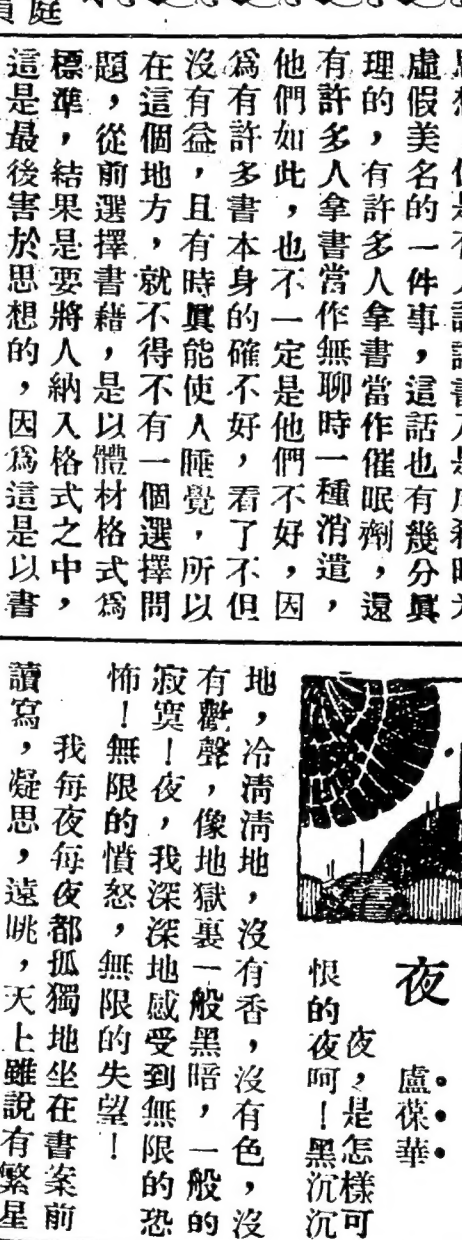 庭
虛假美名的一件事，這話也有幾分眞
理的，有許多人拿書當作催眠劑，還
有許多人拿書當作無聊時一種消遣，
他們如此，也不一定是他們不好，因
爲有許多書本身的確不好，看了不但
沒有益，且有時眞能使人睡覺，所以
在這個地方，就不得不有一個選擇問
題，從前選擇書藉，是以體材格式爲
標準，結果是要將人納入格式之中，
這是最後害於思想的，因爲這是以書
夜
盧葆華
夜，是怎樣可
恨的夜呵！黑沉沉
地，冷清清地，沒有香，沒有色，沒
有歡聲，像地獄裏一般黑暗，一般的
寂寞！夜，我深深地感受到無限的恐
怖！無限的憤怒，無限的失望！
我每夜每夜都孤獨地坐在書案前
讀寫，凝思，遠眺，天上雖說有繁星